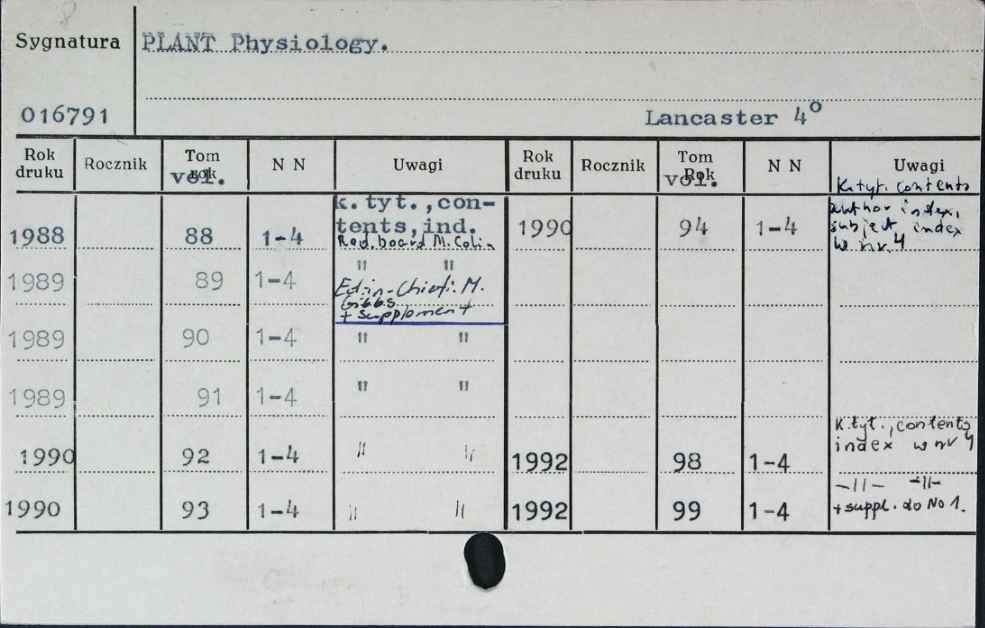 8
Sygnatura PLANT Physiology.
016791 Lancaster 4°
Rok druku Rocznik Tom rok vol. N N Uwagi Rok druku Rocznik Tom Rok vol. N N Uwagi
1988 88 1-4 k. tyt.,con-
tents,ind.
Red. board M. Colin
1989 89 1-4 " "
Ed.in-Chief: M.
Gibbs
+ supplement
1989 90 1-4 " "
1989 91 1-4 " "
1990 92 1-4 " "
1990 93 1-4 " "
1990 94 1-4 K.tyt. contents
author index,
subject index
w nr. 4
1992 98 1-4 K.tyt., contents
index w nr 4
1992 99 1-4 -"- -"-
+suppl. do No 1.